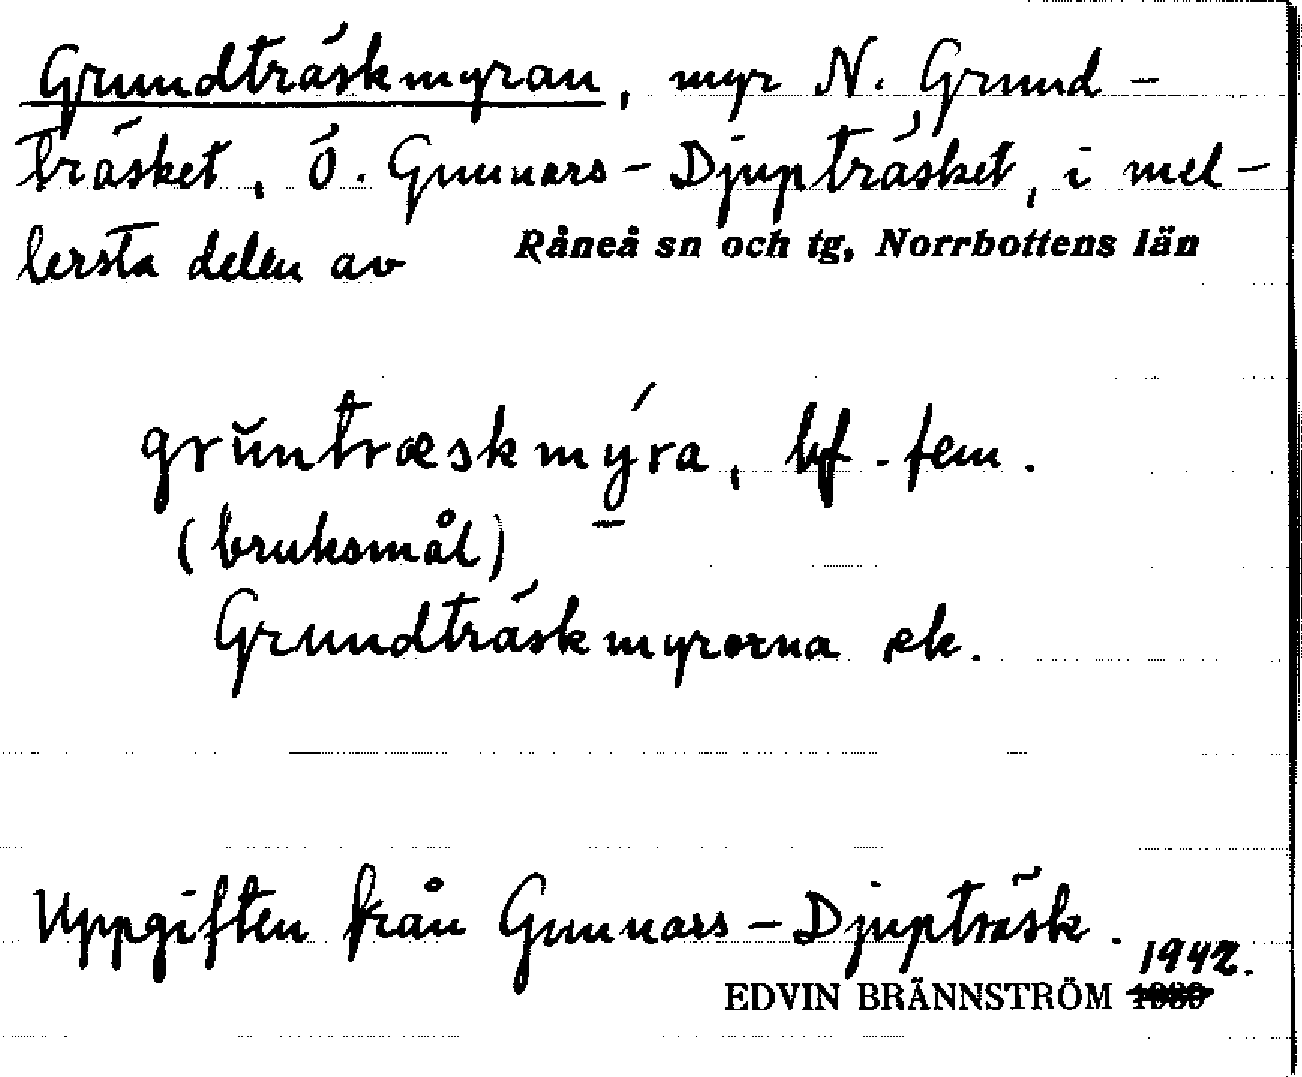 Grundträskmyran, myr N. Grund-
träsket, Ö. Gunnars-Djupträsket, i mel-
lersta delen av Råneå sn och tg, Norrbottens län
gruntræskmýra, bf. fem.
(bruksmål)
Grundträskmyrorna ek.
Uppgiften från Gunnars-Djupträsk.
1942.
EDVIN BRÄNNSTRÖM